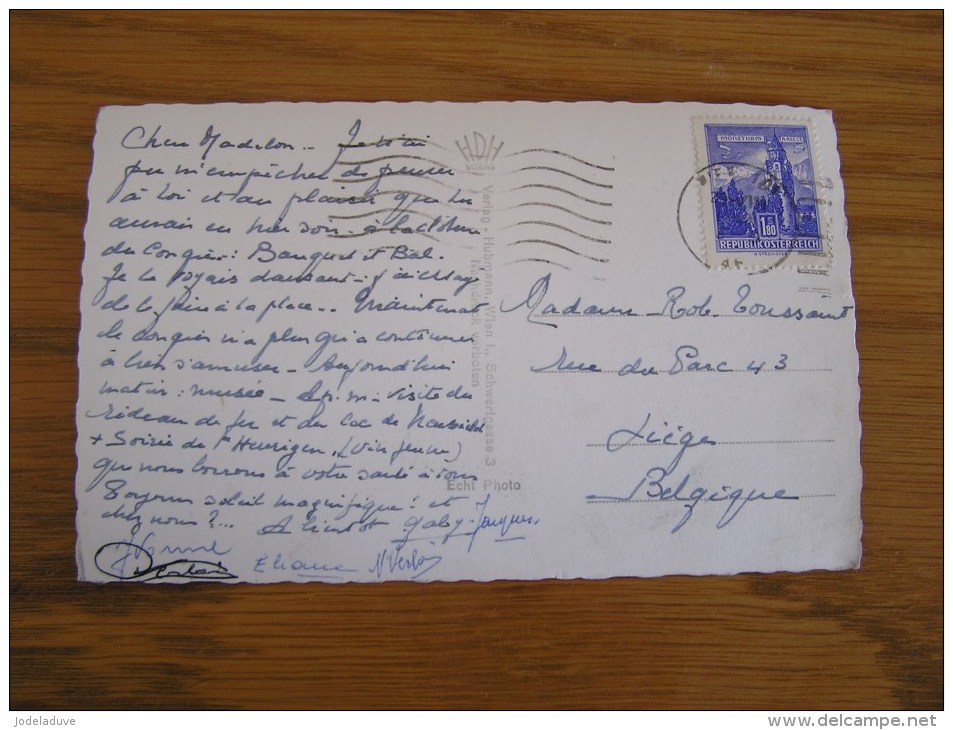 Chère Madelon - Je n'ai
pu m'empêcher de penser
à toi et au plaisir que tu
aurais eu hier soir à la clôture
du Congrès : Banquet et Bal.
Je te voyais dansant -
de le faire à la place .. Maintenant
le congrès n'a plus qu'à continuer
à bien s'amuser - Aujourd'hui
matin : musée - Ap. m. visite du
rideau de fer et du lac de
+ Soirée de Heurigen, (Vin jeune)
que nous boirons à votre santé à tous
soleil magnifique ! et
chez nous ?... A bientôt Gaby - Jacques
Eliane
HDH
Verlag Hubmann, Wien I., Schwertgasse 3
Nachdruck verboten
Echt Photo
MÜNZTURM HALL I. T.
1.80
REPUBLIK ÖSTERREICH
Madame Rob. Toussaint
rue du Parc 43
Liège
Belgique
jodeladuve
http://www.delcampe.net